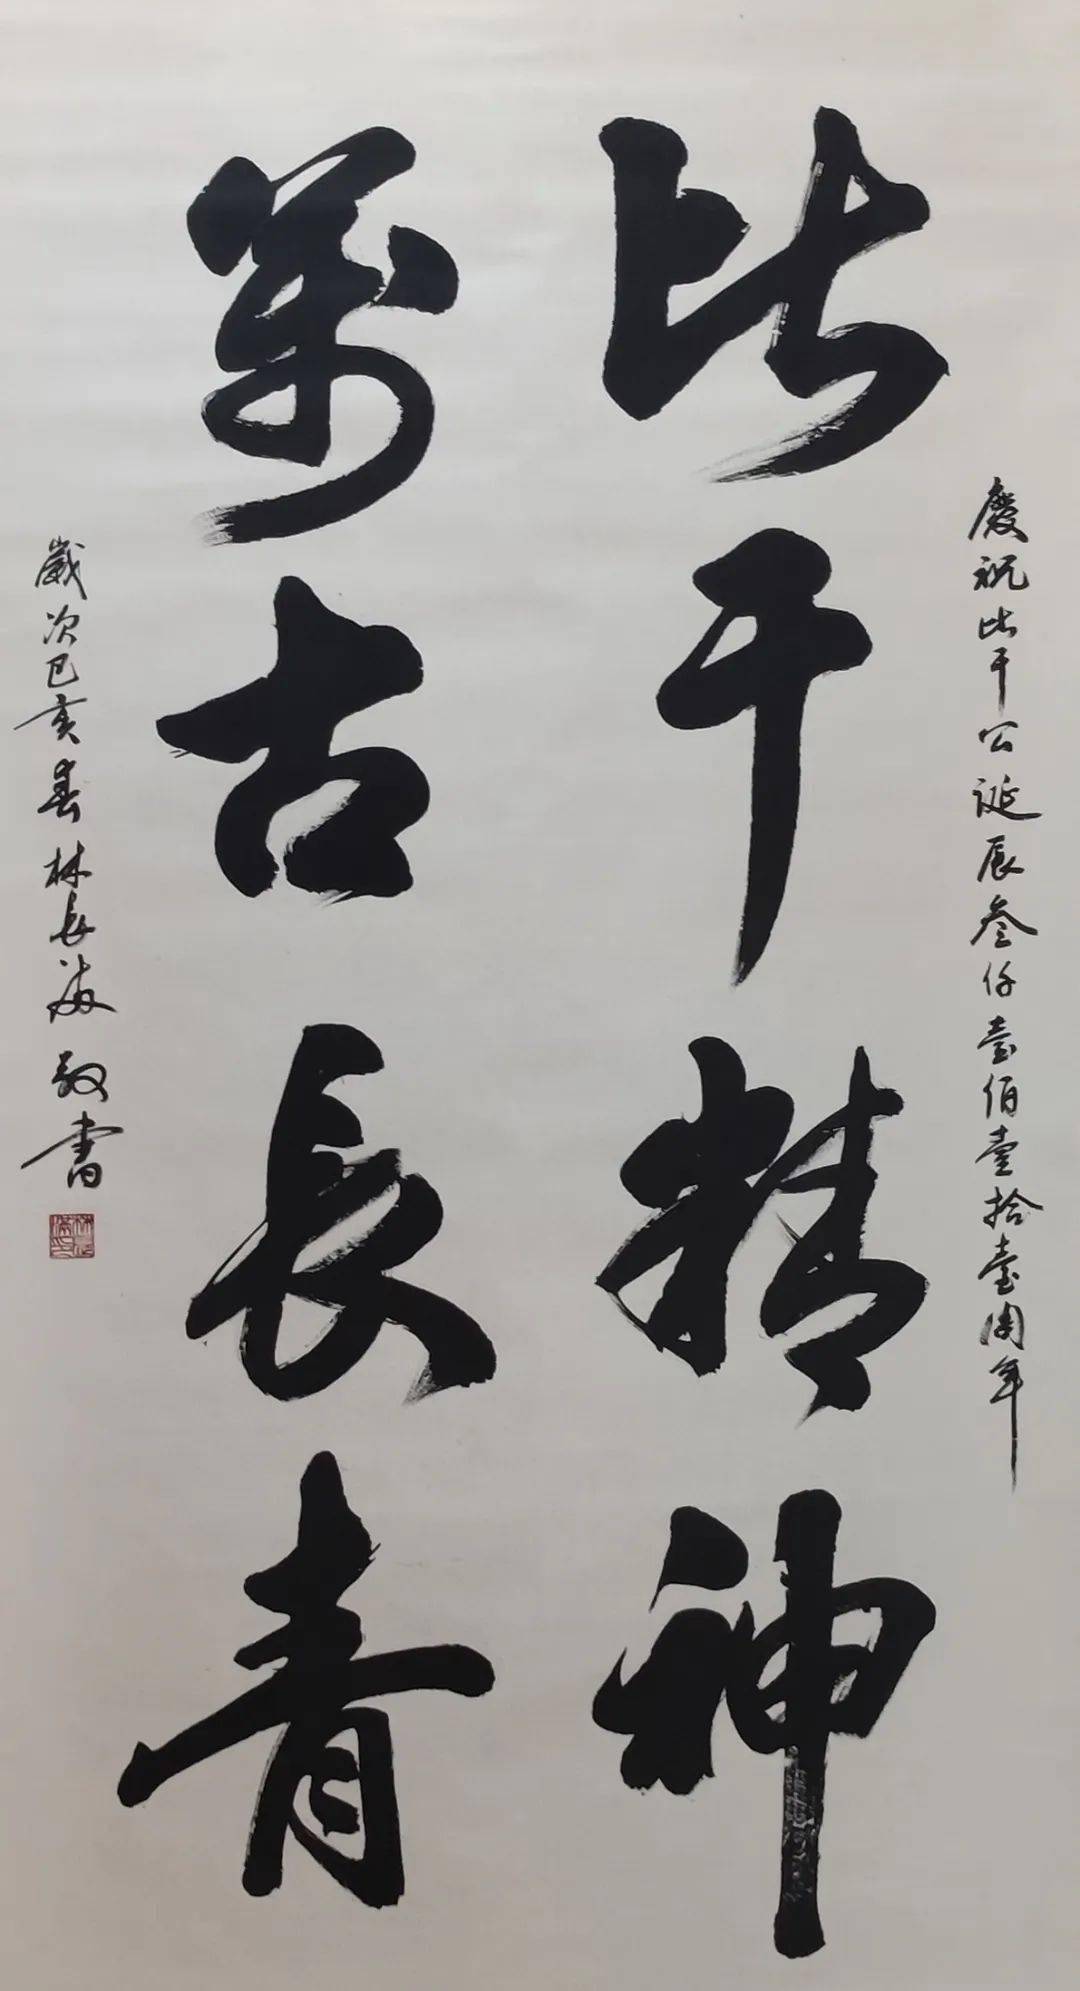 慶祝比干公誕辰叁仟壹佰壹拾壹周年
比干精神
萬古長青
歲次己亥春林長敬書